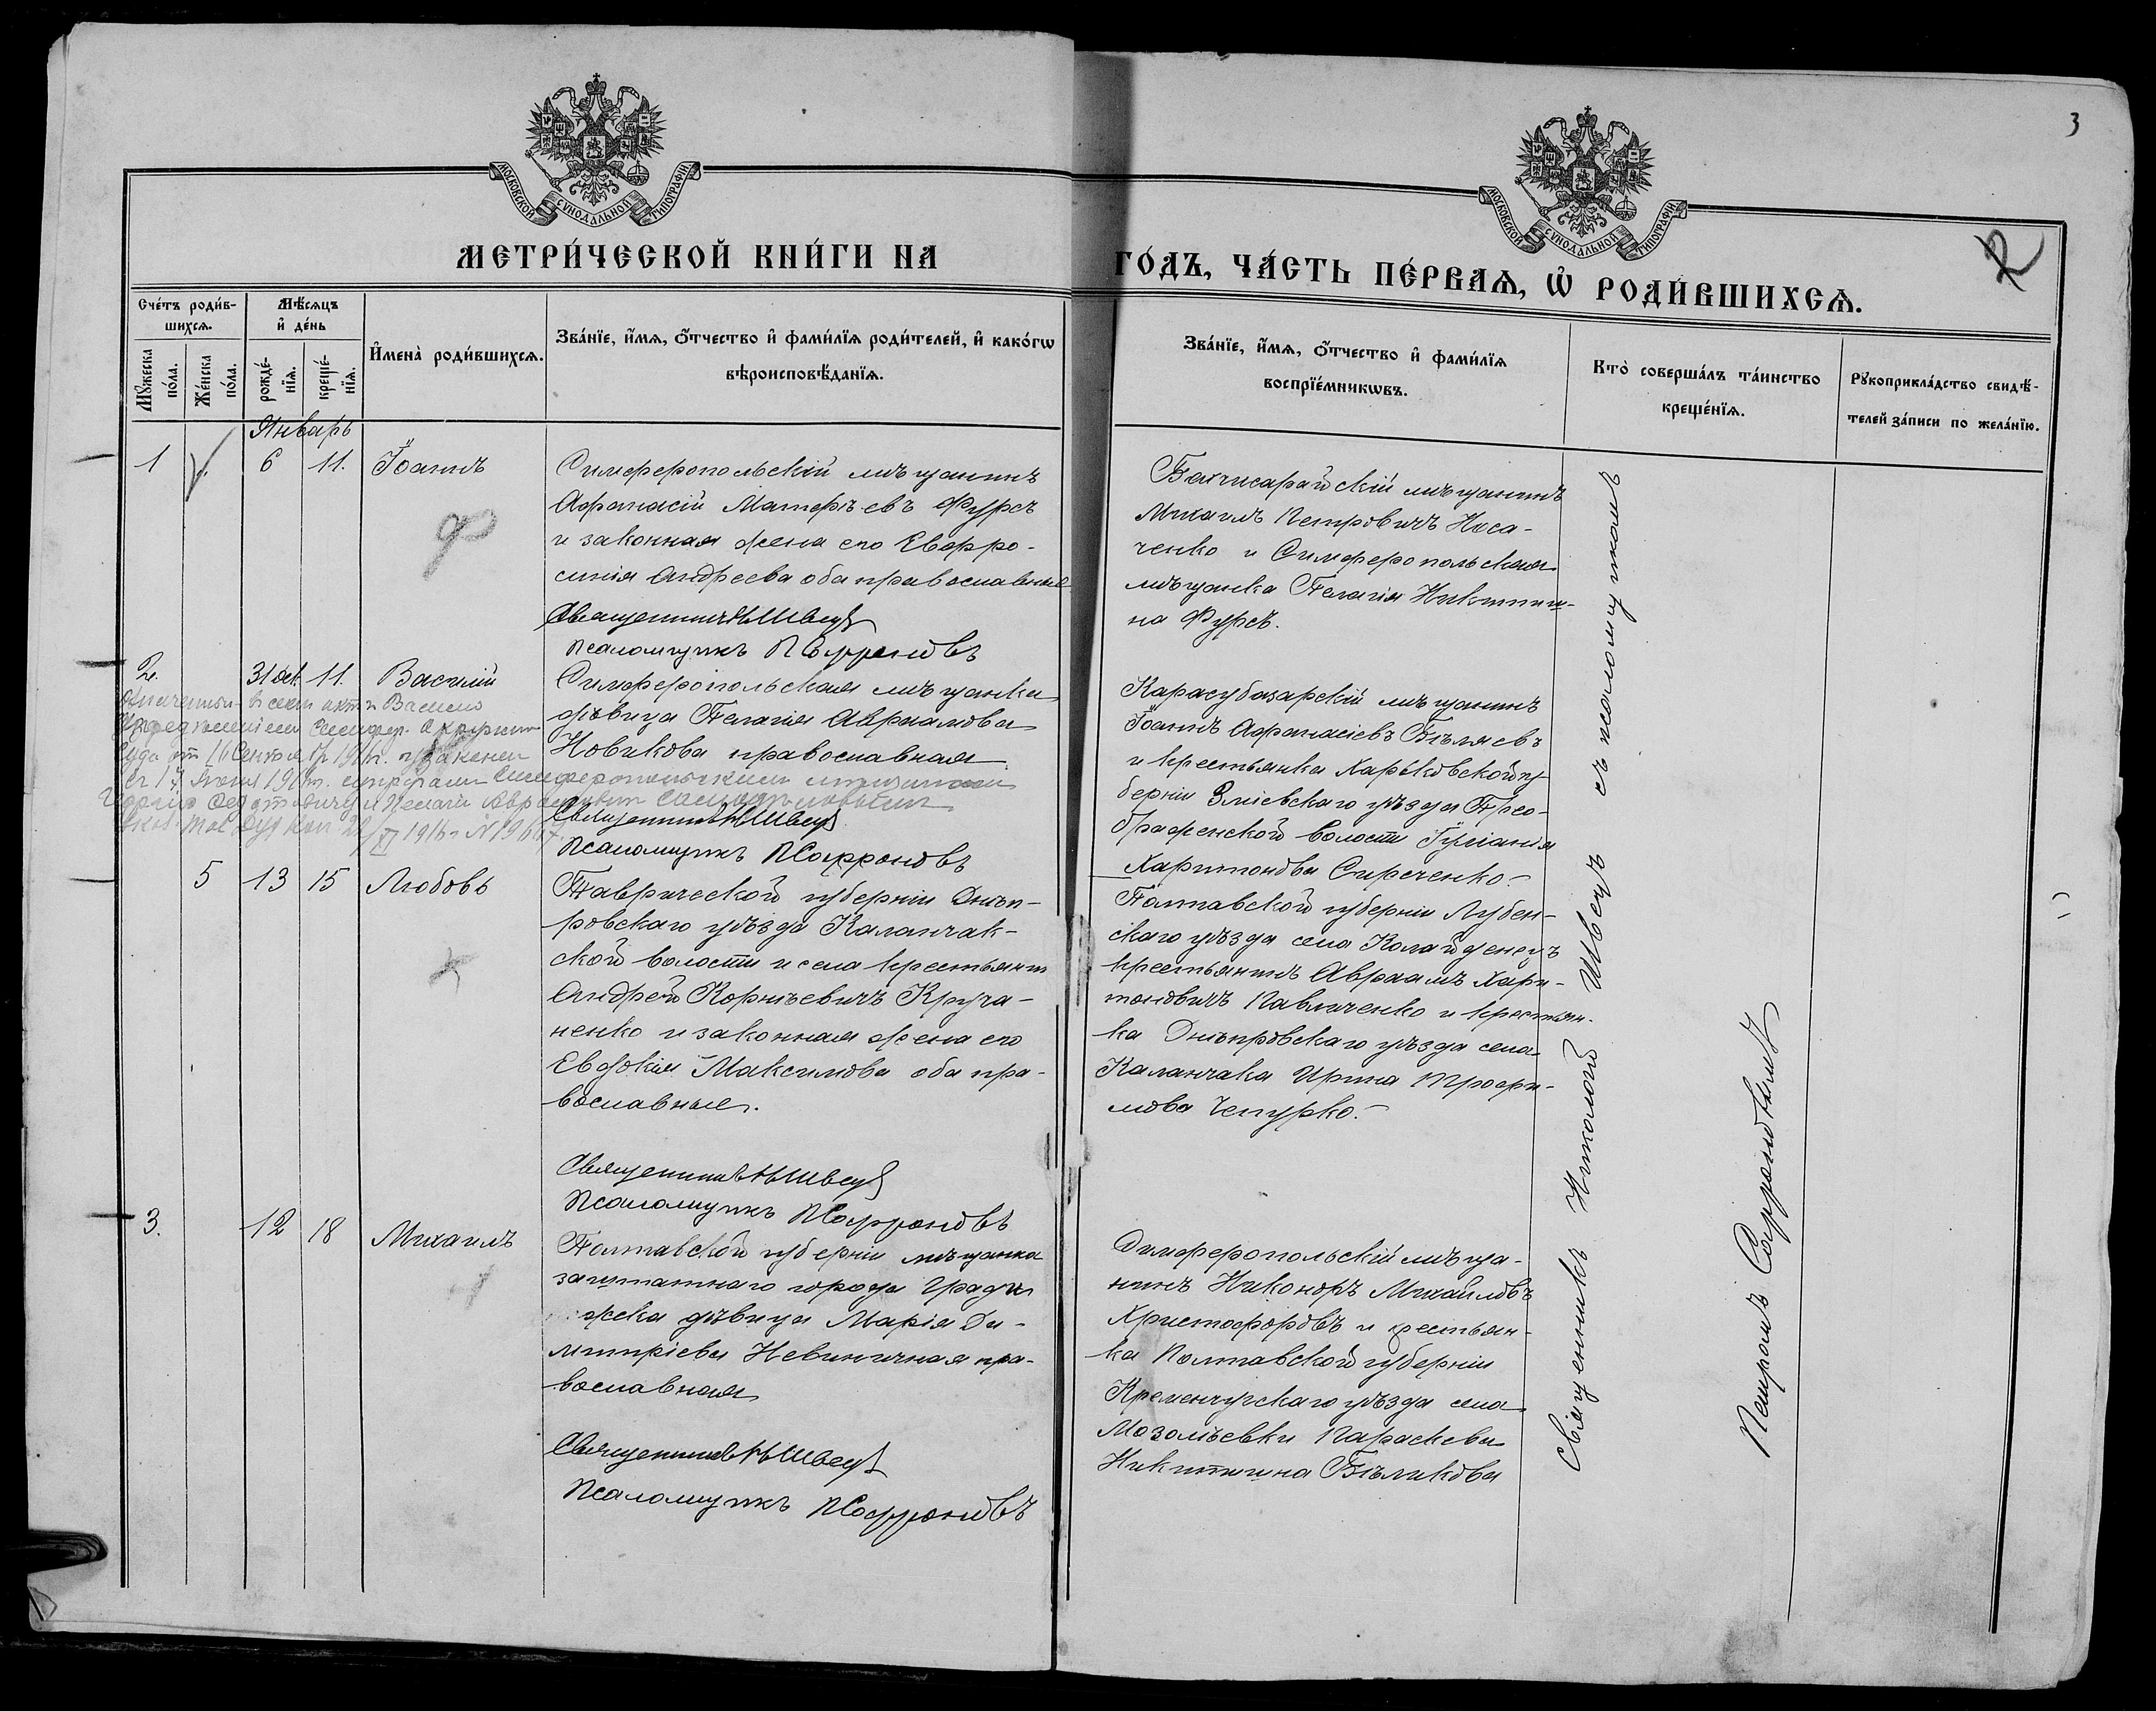 3
МОСКОВСКОЙ СѴНОДАЛЬНОЙ ТИПОГРАФІИ
МОСКОВСКОЙ СѴНОДАЛЬНОЙ ТИПОГРАФІИ
МЕТРИ́ЧЕСКОЙ КНИ́ГИ НА
ГО́ДЪ, ЧА́СТЬ ПЕ́РВАѦ, Ѡ҆ РОДИ́ВШИХСѦ.
Сче́тъ роди́в-
шихсѧ.
Мѣ́сѧцъ
и҆ де́нь
Мꙋ́жеска
по́ла.
Же́нска
по́ла.
рожде́-
нїѧ.
креще́-
нїѧ.
И҆мена̀ роди́вшихсѧ.
Зва́нїе, и҆́мѧ, ѻ҆́тчество и҆ фами́лїѧ роди́телей, и҆ како́гѡ
вѣроисповѣ́данїѧ.
Зва́нїе, и҆́мѧ, ѻ҆́тчество и҆ фами́лїѧ
воспрїе́мникѡвъ.
Кто̀ соверша́лъ та́инство
креще́нїѧ.
Рꙋкоприкла́дство свидѣ́-
телей за́писи по жела́нїю.
Январь
1
6
11.
Іоаннъ
Симферопольскій мѣщанинъ
Афанасій Матфѣевъ Фурсъ
и законная жена его Евфро-
синія Андреева оба православные
Священникъ Н Швецъ
Псаломщикъ П Софроновъ
Бахчисарайскій мѣщанинъ
Михаилъ Петровичъ Носа-
ченко и Симферопольская
мѣщанка Пелагія Никитиш-
на Фурсъ.
2.
31 дек.
11.
Василій
Симферопольская мѣщанка
дѣвица Пелагія Авраамова
Новикова православная
Священникъ Н Швецъ
Псаломщикъ П Софроновъ
Карасубазарскій мѣщанинъ
Іоаннъ Афанасіевъ Бѣляевъ
и крестьянка Харьковской гу-
берніи Зміевскаго уѣзда Прео-
браженской волости Іуліанія
Харитонова Сиреченко.
5
13
15
Любовь
Таврической губерніи Днѣп-
ровскаго уѣзда Каланчак-
ской волости и села крестьянинъ
Андрей Корніевичъ Круча-
ненко и законная жена его
Евдокія Максимова оба пра-
вославные.
Священникъ Н Швецъ
Псаломщикъ П Софроновъ
Полтавской губерніи Лубен-
скаго уѣзда села Колайденецъ
крестьянинъ Авраамъ Хари-
тоновичъ Павличенко и крестьян-
ка Днѣпровскаго уѣзда села
Каланчака Ирина Трофи-
мова Чепурко.
3.
12
18
Михаилъ
Полтавской губерніи мѣщанка
заштатнаго города Гради
жска дѣвица Марія Ди-
митріева Невиничная пра-
вославная
Священникъ Н Швецъ
Псаломщикъ П Софроновъ
Симферопольскій мѣща-
нинъ Никоноръ Михайловъ
Христофоровъ и крестьян-
ка Полтавской губерніи
Кременчугскаго уѣзда села
Мозолѣевки Параскева
Никитична Бѣликова
Священникъ Николай Швецъ съ псаломщикомъ
Петромъ Софроновымъ